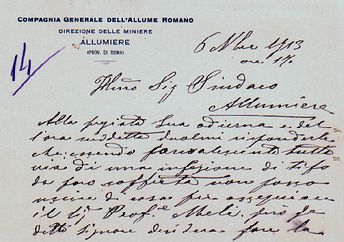 COMPAGNIA GENERALE DELL'ALLUME ROMANO
DIREZIONE DELLE MINIERE
ALLUMIERE
(PROV. DI ROMA)
6 Nbre 1913
ore 17
14
Illmo Sig Sindaco
Allumiere
Alla pregiata Sua odierna e del
l'ora suddetta duolmi risponderle
che essendo tutta
via di una infezione di tifo
da poco sofferta non posso
uscire di casa per ossequiare
il Sig Prof. Mele, però se
detto signore desidera fare la